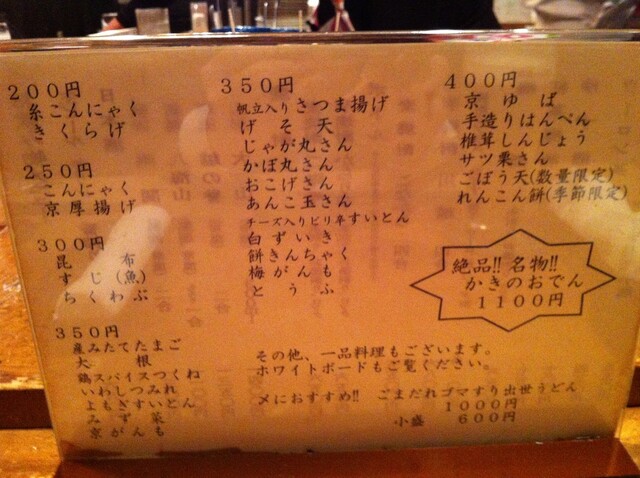 200円
糸こんにゃく
きくらげ
250円
こんにゃく
京厚揚げ
300円
昆布
すじ(魚)
ちくわぶ
350円
産みたてたまご
大根
鶏スパイスつくね
いわしつみれ
よもぎすいとん
みず菜
京がんも
350円
帆立入りさつま揚げ
げそ天
じゃが丸さん
かぼ丸さん
おこげさん
あんこ玉さん
チーズ入りピリ辛すいとん
白ずいき
餅きんちゃく
梅がんも
とうふ
400円
京ゆば
手造りはんぺん
椎茸しんじょう
サツ栗さん
ごぼう天(数量限定)
れんこん餅(季節限定)
絶品!! 名物!!
かきのおでん
1100円
その他、一品料理もございます。
ホワイトボードもご覧ください。
〆におすすめ!! ごまだれゴマすり出世うどん
1000円
小盛 600円